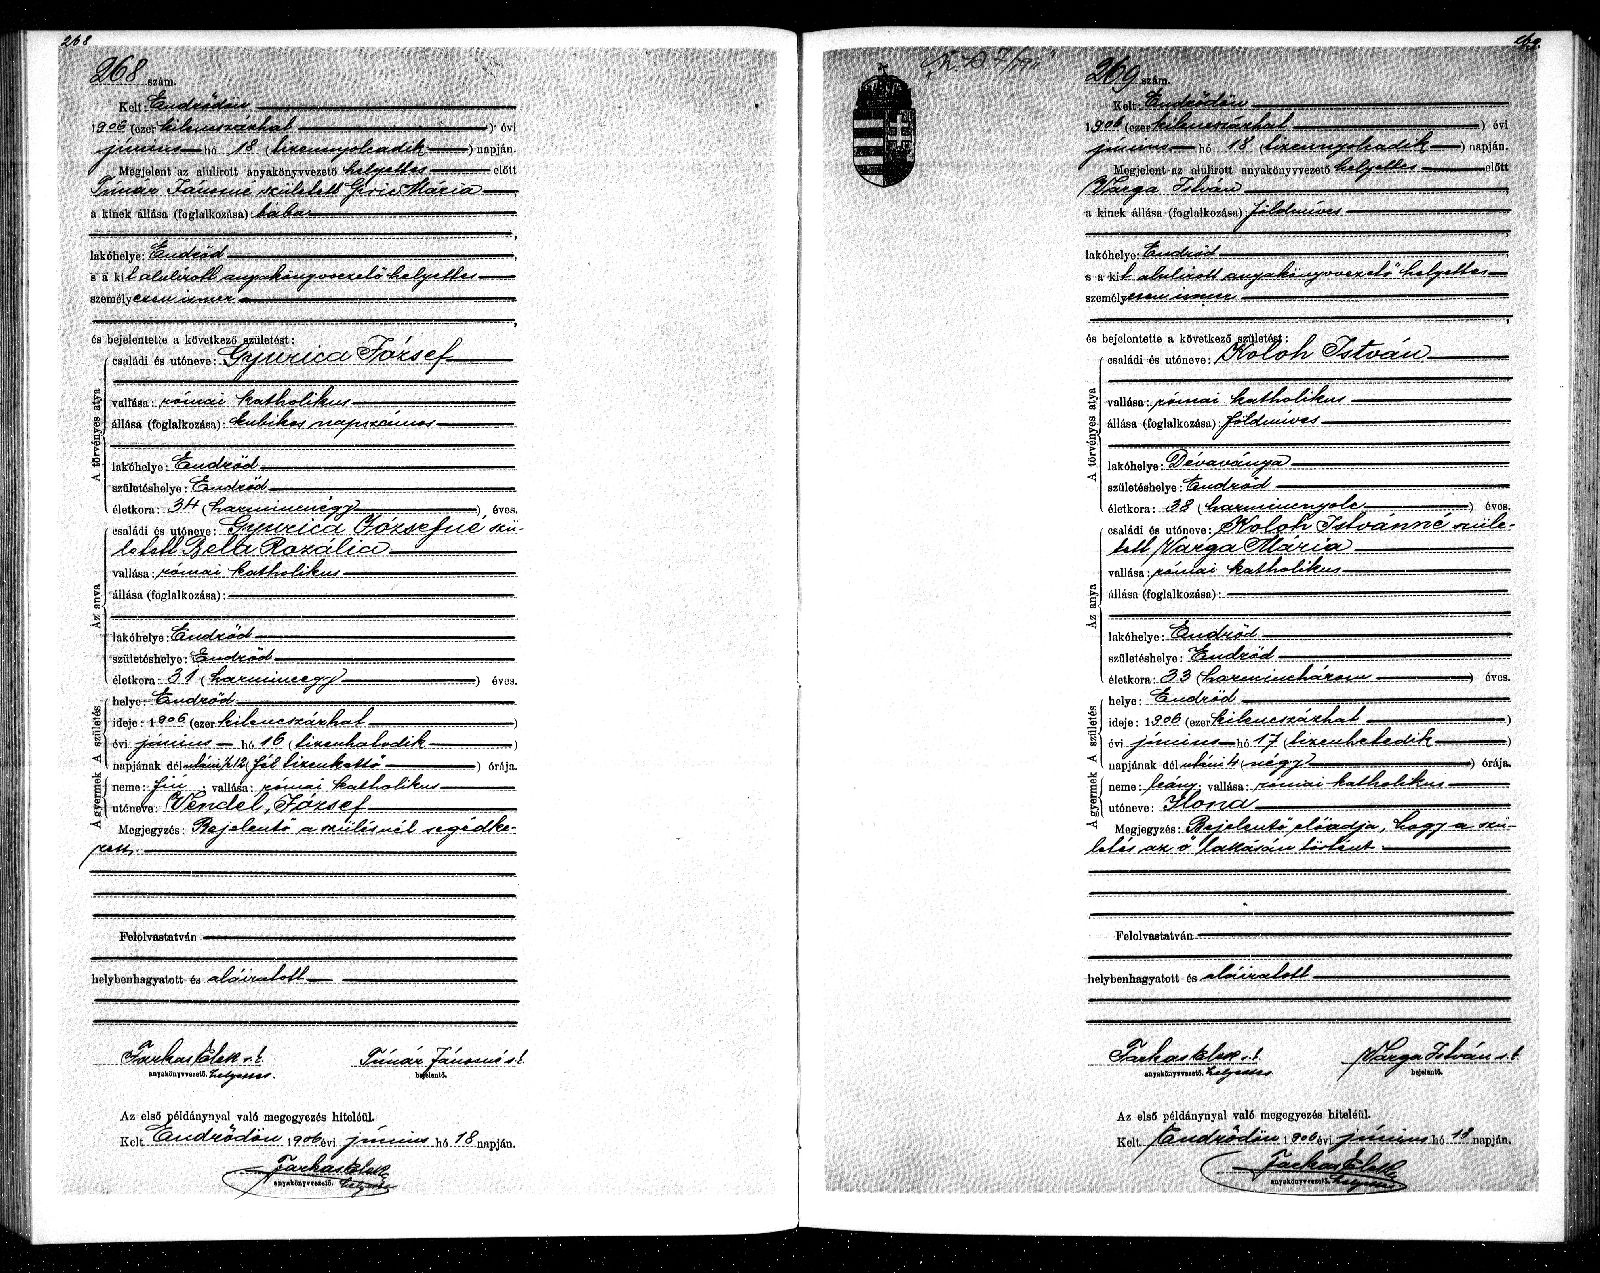 268
268 szám.
Kelt: Endrődön
1906 (ezer kilencszázhat) évi
június hó 18 (tizennyolcadik) napján.
Megjelent az alulirott anyakönyvvezető helyettes előtt
Timár Jánosné született Mária,
a kinek állása (foglalkozása): bába
,
lakóhelye: Endrőd
s a kit alulirott anyakönyvvezető helyettes
személyesen ismer
,
és bejelentette a következő születést:
A törvényes atya
családi és utóneve: Gyurica József
vallása: római katholikus
állása (foglalkozása): kubikos napszámos
lakóhelye: Endrőd
születéshelye: Endrőd
életkora: 34 (harmincnégy) éves.
Az anya
családi és utóneve: Gyurica Józsefné szü-
letett Bella Rozália
vallása: római katholikus
állása (foglalkozása):
lakóhelye: Endrőd
születéshelye: Endrőd
életkora: 31 (harmincegy) éves.
A gyermek A születés
helye: Endrőd
ideje: 1906 (ezer kilencszázhat)
évi június hó 16 (tizenhatodik)
napjának délutáni ½12 (fél tizenkettő) órája.
neme: fiú; vallása: római katholikus
utóneve: Vendel, József
Megjegyzés: Bejelentő a szülésnél segédke-
zett.
Felolvastatván
helybenhagyatott és aláiratott
Farkas Elek s. k. Timár Jánosné s. k.
anyakönyvvezető. helyettes bejelentő.
Az első példánynyal való megegyezés hiteléül.
Kelt Endrődön 1906 évi június hó 18 napján.
Farkas Elek
anyakönyvvezető. helyettes
269
269 szám.
Kelt: Endrődön
1906 (ezer kilencszázhat) évi
június hó 18 (tizennyolcadik) napján.
Megjelent az alulirott anyakönyvvezető helyettes előtt
Varga István,
a kinek állása (foglalkozása): földmíves
,
lakóhelye: Endrőd
s a kit alulirott anyakönyvvezető helyettes
személyesen ismer
,
és bejelentette a következő születést:
A törvényes atya
családi és utóneve: Koloh István
vallása: római katholikus
állása (foglalkozása): földmíves
lakóhelye: Dévaványa
születéshelye: Endrőd
életkora: 38 (harmincnyolc) éves.
Az anya
családi és utóneve: Koloh Istvánné szüle-
tett Varga Mária
vallása: római katholikus
állása (foglalkozása):
lakóhelye: Endrőd
születéshelye: Endrőd
életkora: 33 (harminchárom) éves.
A gyermek A születés
helye: Endrőd
ideje: 1906 (ezer kilencszázhat)
évi június hó 17 (tizenhetedik)
napjának délutáni 4 (négy) órája.
neme: leány; vallása: római katholikus
utóneve: Ilona
Megjegyzés: Bejelentő előadja, hogy a szü-
letés az ő lakásán történt
Felolvastatván
helybenhagyatott és aláiratott
Farkas Elek s. k. Varga István s. k.
anyakönyvvezető. helyettes bejelentő.
Az első példánynyal való megegyezés hiteléül.
Kelt Endrődön 1906 évi június hó 18 napján.
Farkas Elek
anyakönyvvezető. helyettes